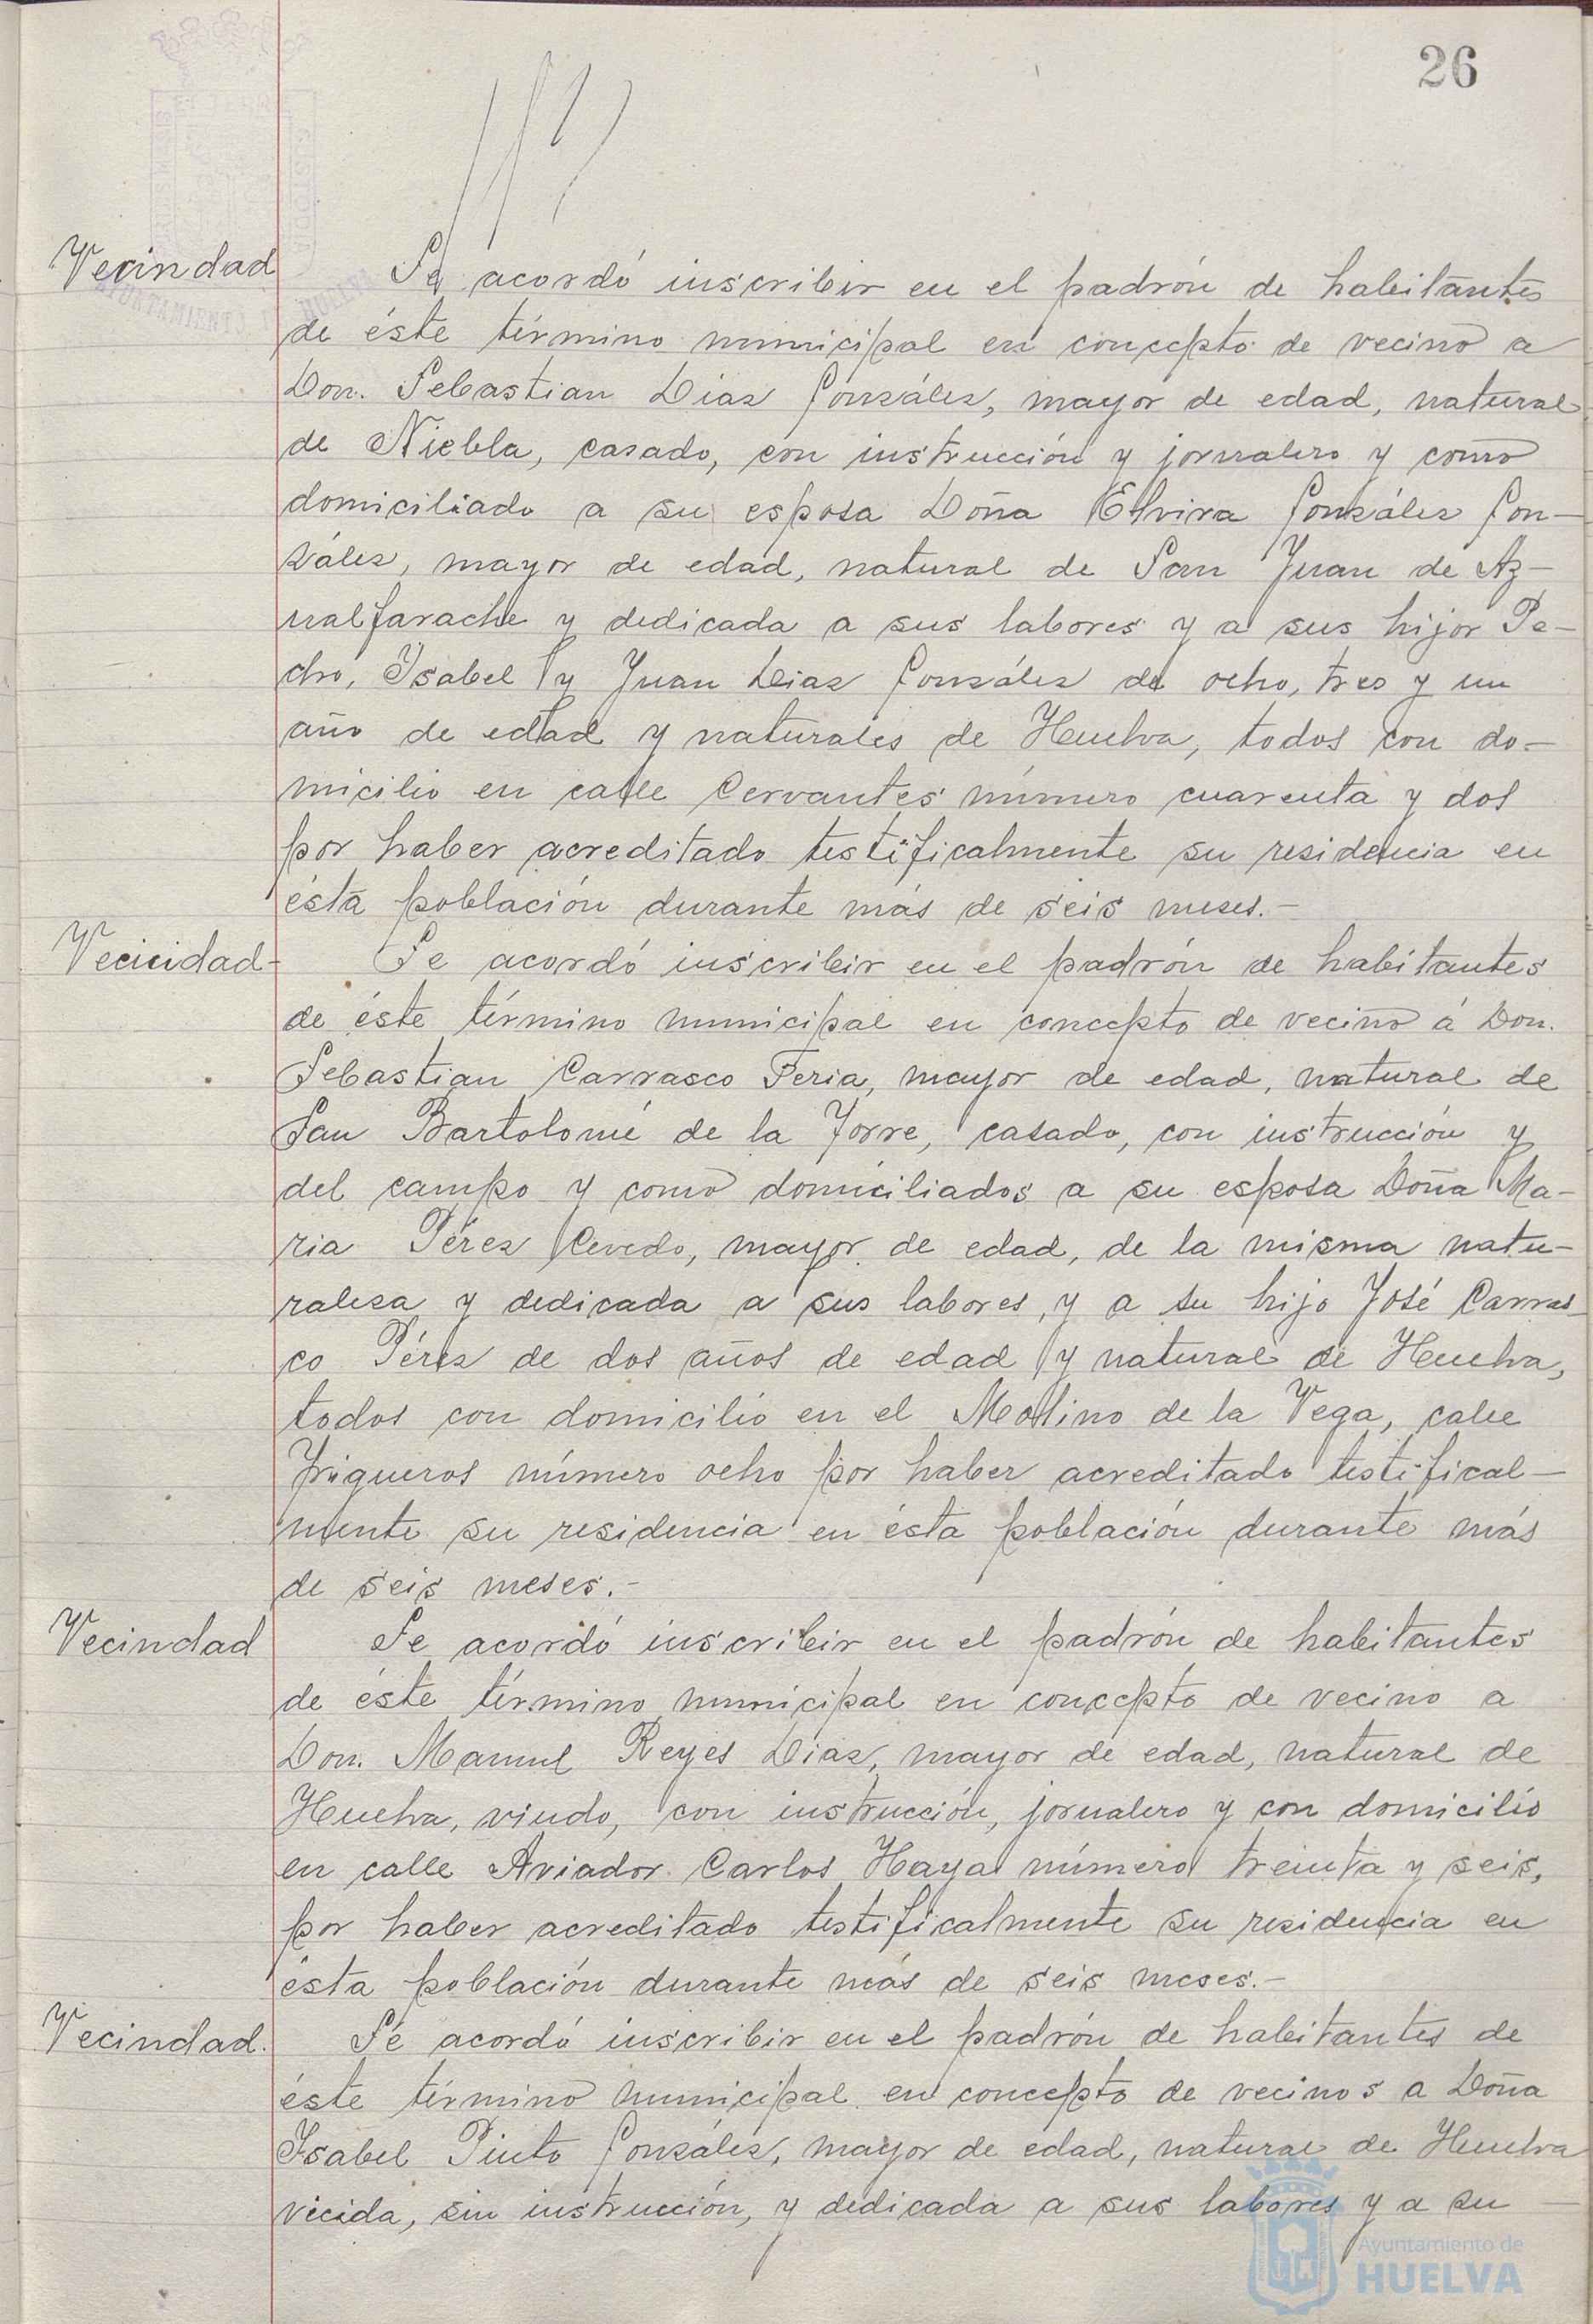 26
Vecindad
Se acordó inscribir en el padrón de habitantes
de éste término municipal en concepto de vecino a
Don. Sebastian Diaz Gonzáles, mayor de edad, natural
de Niebla, casado, con instrucción y jornalero y como
domiciliado a su esposa Doña Elvira Gonzáles Gon-
záles, mayor de edad, natural de San Juan de Az-
nalfarache y dedicada a sus labores y a sus hijos Pe-
dro, Ysabel y Juan Diaz Gonzáles de ocho, tres y un
año de edad y naturales de Huelva, todos con do-
micilio en calle Cervantes número cuarenta y dos
por haber acreditado testificalmente su residencia en
ésta población durante más de seis meses.-
Vecindad-
Se acordó inscribir en el padrón de habitantes
de éste término municipal en concepto de vecino á Don.
Sebastian Carrasco Feria, mayor de edad, natural de
San Bartolomé de la Torre, casado, con instrucción y
del campo y como domiciliados a su esposa Doña Ma-
ria Pérez Cevedo, mayor de edad, de la misma natu-
raleza y dedicada a sus labores, y a su hijo José Carras-
co Pérez de dos años de edad y natural de Huelva,
todos con domicilio en el Molino de la Vega, calle
Trigueros número ocho por haber acreditado testifical-
mente su residencia en ésta población durante más
de seis meses.-
Vecindad
Se acordó inscribir en el padrón de habitantes
de éste término municipal en concepto de vecino a
Don. Manuel Reyes Diaz, mayor de edad, natural de
Huelva, viudo, con instrucción, jornalero y con domicilio
en calle Aviador Carlos Haya número treinta y seis,
por haber acreditado testificalmente su residencia en
ésta población durante más de seis meses.-
Vecindad.
Se acordó inscribir en el padrón de habitantes de
éste término municipal en concepto de vecinos a Doña
Ysabel Pinto Gonzáles, mayor de edad, natural de Huelva
viuda, sin instrucción, y dedicada a sus labores y a su
Ayuntamiento de
HUELVA